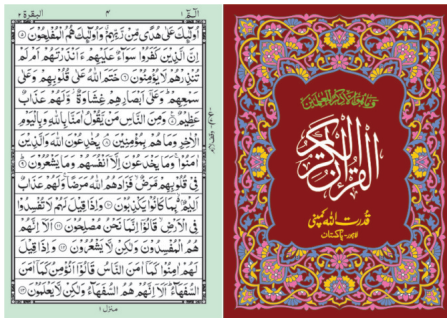 الٓمّٓ ١ ٤ البقرة ٢
اُولٰٓئِكَ عَلٰى هُدًى مِّنْ رَّبِّهِمْ وَاُولٰٓئِكَ هُمُ الْمُفْلِحُوْنَ ۝
اِنَّ الَّذِيْنَ كَفَرُوْا سَوَآءٌ عَلَيْهِمْ ءَاَنْذَرْتَهُمْ اَمْ لَمْ
تُنْذِرْهُمْ لَا يُؤْمِنُوْنَ ۝ خَتَمَ اللّٰهُ عَلٰى قُلُوْبِهِمْ وَعَلٰى
سَمْعِهِمْ وَعَلٰٓى اَبْصَارِهِمْ غِشَاوَةٌ وَّلَهُمْ عَذَابٌ
عَظِيْمٌ ۝ وَمِنَ النَّاسِ مَنْ يَّقُوْلُ اٰمَنَّا بِاللّٰهِ وَبِالْيَوْمِ
الْاٰخِرِ وَمَا هُمْ بِمُؤْمِنِيْنَ ۝ يُخٰدِعُوْنَ اللّٰهَ وَالَّذِيْنَ
اٰمَنُوْا وَمَا يَخْدَعُوْنَ اِلَّآ اَنْفُسَهُمْ وَمَا يَشْعُرُوْنَ ۝
فِيْ قُلُوْبِهِمْ مَّرَضٌ فَزَادَهُمُ اللّٰهُ مَرَضًا وَلَهُمْ عَذَابٌ
اَلِيْمٌۢ بِمَا كَانُوْا يَكْذِبُوْنَ ۝ وَاِذَا قِيْلَ لَهُمْ لَا تُفْسِدُوْا
فِي الْاَرْضِ قَالُوْٓا اِنَّمَا نَحْنُ مُصْلِحُوْنَ ۝ اَلَآ اِنَّهُمْ
هُمُ الْمُفْسِدُوْنَ وَلٰكِنْ لَّا يَشْعُرُوْنَ ۝ وَاِذَا قِيْلَ
لَهُمْ اٰمِنُوْا كَمَآ اٰمَنَ النَّاسُ قَالُوْٓا اَنُؤْمِنُ كَمَآ اٰمَنَ
السُّفَهَآءُ اَلَآ اِنَّهُمْ هُمُ السُّفَهَآءُ وَلٰكِنْ لَّا يَعْلَمُوْنَ ۝
منزل ١
وما هو الا ذكر للعلمين
القرآن الكريم
قدرت اللہ کمپنی
لاہور۔پاکستان